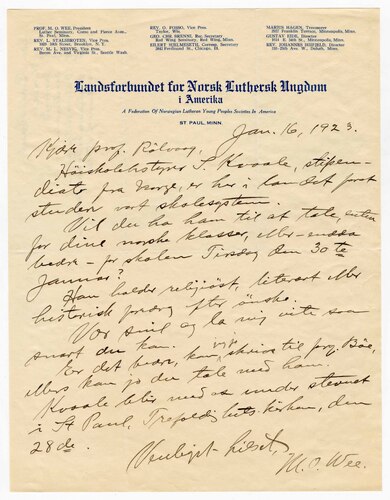 PROF. M. O. WEE, President
Luther Seminary, Como and Pierce Aves.,
St. Paul, Minn.
REV. L. STALSBROTEN, Vice Pres.
REV. M. L. NESVIG, Vice Pres.
REV. O. FOSSO, Vice Pres.
GEO. CHR. BRENNI, Rec. Secretary
Red Wing Seminary, Red Wing, Minn.
EILERT HJELMSETH, Corresp. Secretary
MARIUS HAGEN, Treasurer
2937 Franklin Terrace, Minneapolis, Minn.
GUSTAV EIDE, Director
REV. JOHANNES HØIFJELD, Director
Landsforbundet for Norsk Luthersk Ungdom
i Amerika
A Federation Of Norwegian Lutheran Young Peoples Societies In America
ST. PAUL, MINN.
Jan. 16, 1923.
Kjære prof. Rölvaag,
Höiskolebstyrer S. Kvaale, stipen-
diat fra Norge, er her i landet forat
studere vort skolesystem.
Vil du ha ham til at tale, enten
for dine norske klasser, eller endda
bedre - for skolen Tirsdag den 30te
Januar?
Han holder religiöst, literært eller
historisk foredrag efter önske.
Vær snil og la mig vite som
snart du kan.
Er det bedre, kan jeg skrive til prof. Böe,
ellers kan jo du tale med ham.
Kvaale blir med os under stevnet
i St Paul, Trefoldighets-kirken, den
28de.
Venligst hilset,
M. O. Wee.